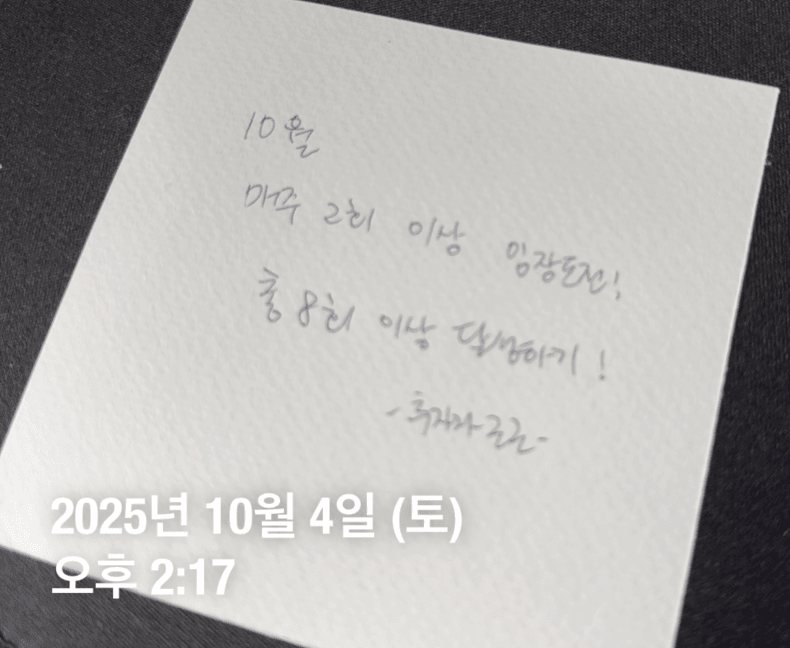 10월
매주 2회 이상 임장도전!
총 8회 이상 달성하기!
-투자자 근근-
2025년 10월 4일 (토)
오후 2:17